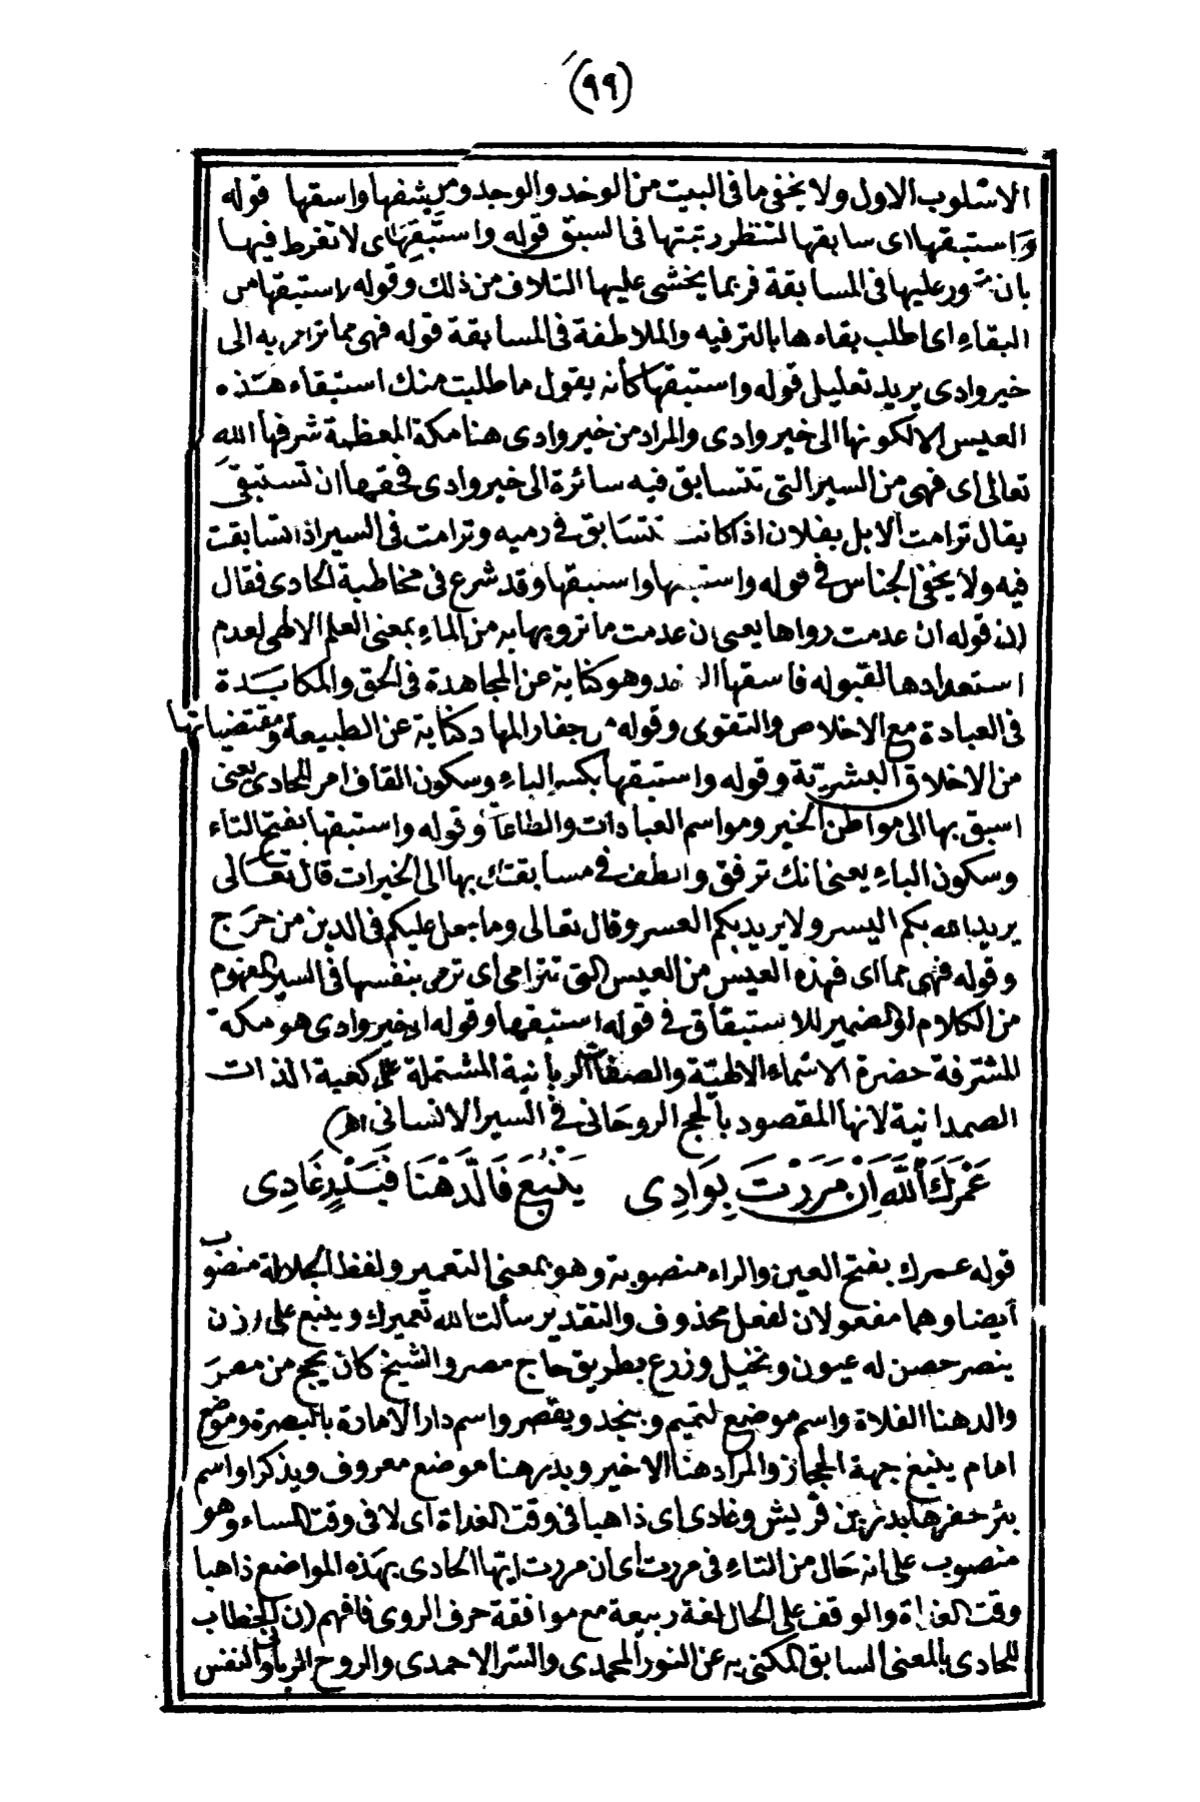 (٩٩)
الاسلوب الاول ولا يخفى ما فى البيت من الوخد والوجد ومن يشفها واسقها قوله
واستبقها اى سابقها لتنظر رتبتها فى السبق قوله واستبقها اى لا تفرط فيها
بان تجور عليها فى المسابقة فربما يخشى عليها التلاف من ذلك وقوله واستبقها من
البقاء اى اطلب بقاءها بالترفيه والملاطفة فى المسابقة قوله فهى مما ترامى به الى
خير وادى يريد تعليل قوله واستبقها كأنه يقول ما طلبت منك استبقاء هذه
العيس الا لكونها الى خير وادى والمراد من خير وادى هنا مكة المعظمة شرفها الله
تعالى اى فهى من السير التى تتسابق فيه سائرة الى خير وادى فحقها ان تستبقى
يقال ترامت الابل بفلان اذا كانت تتسابق فى رميه وترامت فى السير اذا تسابقت
فيه ولا يخفى الجناس فى قوله واستبقها واستبقها وقد شرع فى مخاطبة الحادى فقال
(ن) قوله ان عدمت رواها يعنى ان عدمت ما ترويها به من الماء بمعنى العلم الالهى لعدم
استعدادها لقبوله فاسقها الوخد وهو كناية عن المجاهدة فى الحق والمكابدة
فى العبادة مع الاخلاص والتقوى وقوله من جفار المهاد كناية عن الطبيعة ومقتضياتها
من الاخلاق البشرية وقوله واستبقها بكسر الباء وسكون القاف امر للحادى يعنى
اسبق بها الى مواطن الخير ومواسم العبادات والطاعات وقوله واستبقها بفتح التاء
وسكون الباء يعنى انك ترفق والطف فى مسابقتك بها الى الخيرات قال تعالى
يريد الله بكم اليسر ولا يريد بكم العسر وقال تعالى وما جعل عليكم فى الدين من حرج
وقوله فهى مما اى فهذه العيس من العيس التى تترامى اى ترمى بنفسها فى السير المفهوم
من الكلام او الضمير للاستبقاق فى قوله استبقها وقوله الى خير وادى هو مكة
المشرفة حضرة الاسماء الالهية والصفات الربانية المشتملة على كعبة الذات
الصمدانية لانها المقصود بالحج الروحانى فى السير الانسانى اهـ)
عَمْرَكَ اللَّهَ اِنْ مَرَرْتَ بِوَادِى يَنْبُعَ فَالدَّهْنَا فَبَدْرٍ غَادِى
قوله عمرك بفتح العين والراء منصوبة وهو بمعنى التعمير ولفظ الجلالة منصوب
أيضا وهما مفعولان لفعل محذوف والتقدير سألت الله تعميرك وينبع على وزن
ينصر حصن له عيون ونخيل وزرع بطريق حاج مصر والشيخ كان يحج من مصر
والدهنا الفلاة واسم موضع لتميم وبنجد ويقصر واسم دار الامارة بالبصرة وموضع
امام ينبع جهة الحجاز والمراد هنا الاخير وبدر هنا موضع معروف ويذكر او اسم
بئر حفرها بدر بن قريش وغادى اى ذاهبا فى وقت الغداة اى لا فى وقت المساء وهو
منصوب على انه حال من التاء فى مررت اى ان مررت ايها الحادى بهذه المواضع ذاهبا
وقت الغداة والوقف على الحال لغة ربيعة مع موافقة حرف الروى فافهم (ن) الخطاب
للحادى بالمعنى السابق المكنى به عن النور المحمدى والسر الاحمدى والروح الربانى والنفس